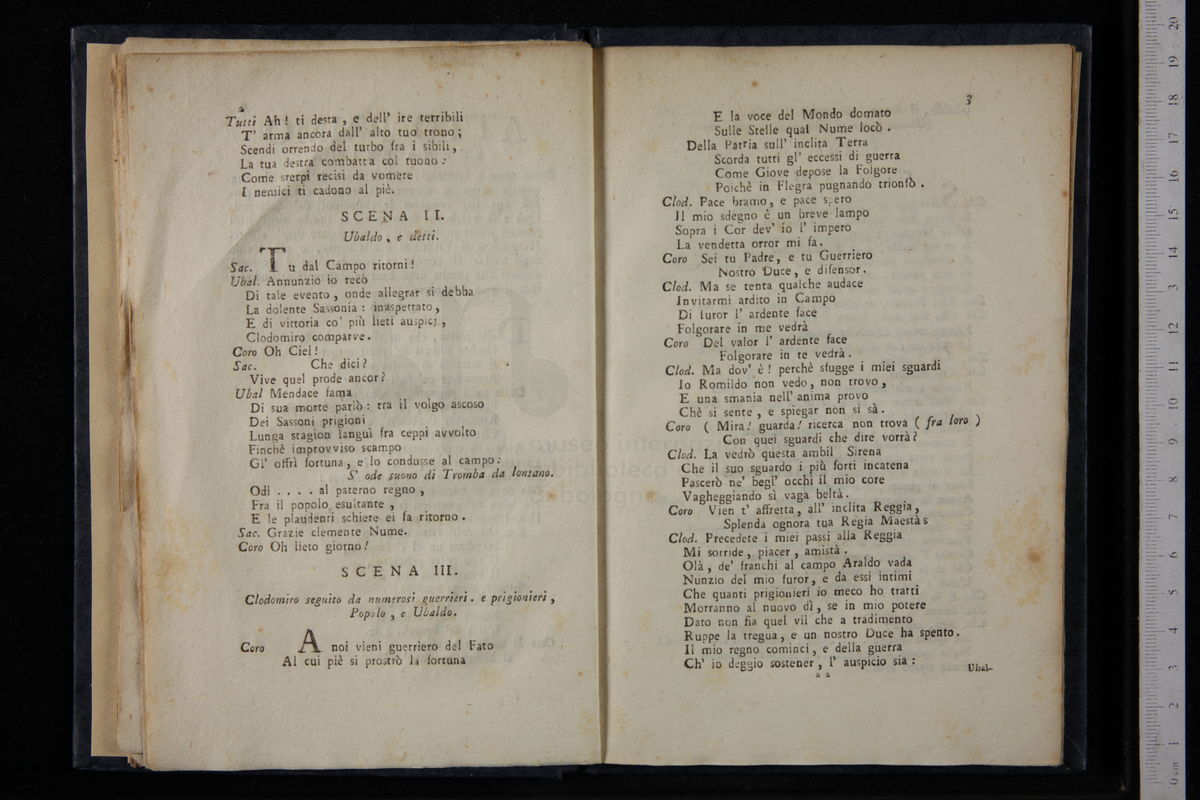 2
Tutti Ah! ti desta, e dell' ire terribili
T' arma ancora dall' alto tuo trono;
Scendi orrendo del turbo fra i sibili,
La tua destra combatta col tuono:
Come sterpi recisi da vomere
I nemici ti cadono al piè.
SCENA II.
Ubaldo, e detti.
Sac. Tu dal Campo ritorni!
Ubal. Annunzio io reco
Di tale evento, onde allegrar si debba
La dolente Sassonia: inaspettato,
E di vittoria co' più lieti auspicj,
Clodomiro comparve.
Coro Oh Ciel!
Sac. Che dici?
Vive quel prode ancor?
Ubal Mendace fama
Di sua morte parlò: tra il volgo ascoso
Dei Sassoni prigioni
Lunga stagion languì fra ceppi avvolto
Finchè improvviso scampo
Gl' offrì fortuna, e lo condusse al campo:
S' ode suono di Tromba da lontano.
Odi .... al paterno regno,
Fra il popolo esultante,
E le plaudenti schiere ei fa ritorno.
Sac. Grazie clemente Nume.
Coro Oh lieto giorno!
SCENA III.
Clodomiro seguito da numerosi guerrieri. e prigionieri,
Popolo, e Ubaldo.
Coro A noi vieni guerriero del Fato
Al cui piè si prostrò la fortuna
3
E la voce del Mondo domato
Sulle Stelle qual Nume locò.
Della Patria sull' inclita Terra
Scorda tutti gl' eccessi di guerra
Come Giove depose la Folgore
Poichè in Flegra pugnando trionfò.
Clod. Pace bramo, e pace spero
Il mio sdegno è un breve lampo
Sopra i Cor dev' io l' impero
La vendetta orror mi fa.
Coro Sei tu Padre, e tu Guerriero
Nostro Duce, e difensor.
Clod. Ma se tenta qualche audace
Invitarmi ardito in Campo
Di furor l' ardente face
Folgorare in me vedrà
Coro Del valor l' ardente face
Folgorare in te vedrà.
Clod. Ma dov' è! perchè sfugge i miei sguardi
Io Romildo non vedo, non trovo,
E una smania nell' anima provo
Chè si sente, e spiegar non si sà.
Coro ( Mira! guarda! ricerca non trova ( fra loro )
Con quei sguardi che dire vorrà?
Clod. La vedrò questa ambil Sirena
Che il suo sguardo i più forti incatena
Pascerò ne' begl' occhi il mio core
Vagheggiando sì vaga beltà.
Coro Vien t' affretta, all' inclita Reggia,
Splenda ognora tua Regia Maestàs
Clod. Precedete i miei passi alla Reggia
Mi sorride, piacer, amistà.
Olà, de' franchi al campo Araldo vada
Nunzio del mio furor, e da essi intimi
Che quanti prigionieri io meco ho tratti
Morranno al nuovo dì, se in mio potere
Dato non fia quel vil che a tradimento
Ruppe la tregua, e un nostro Duce ha spento.
Il mio regno cominci, e della guerra
Ch' io deggio sostener, l' auspicio sia:
a a
Ubal-